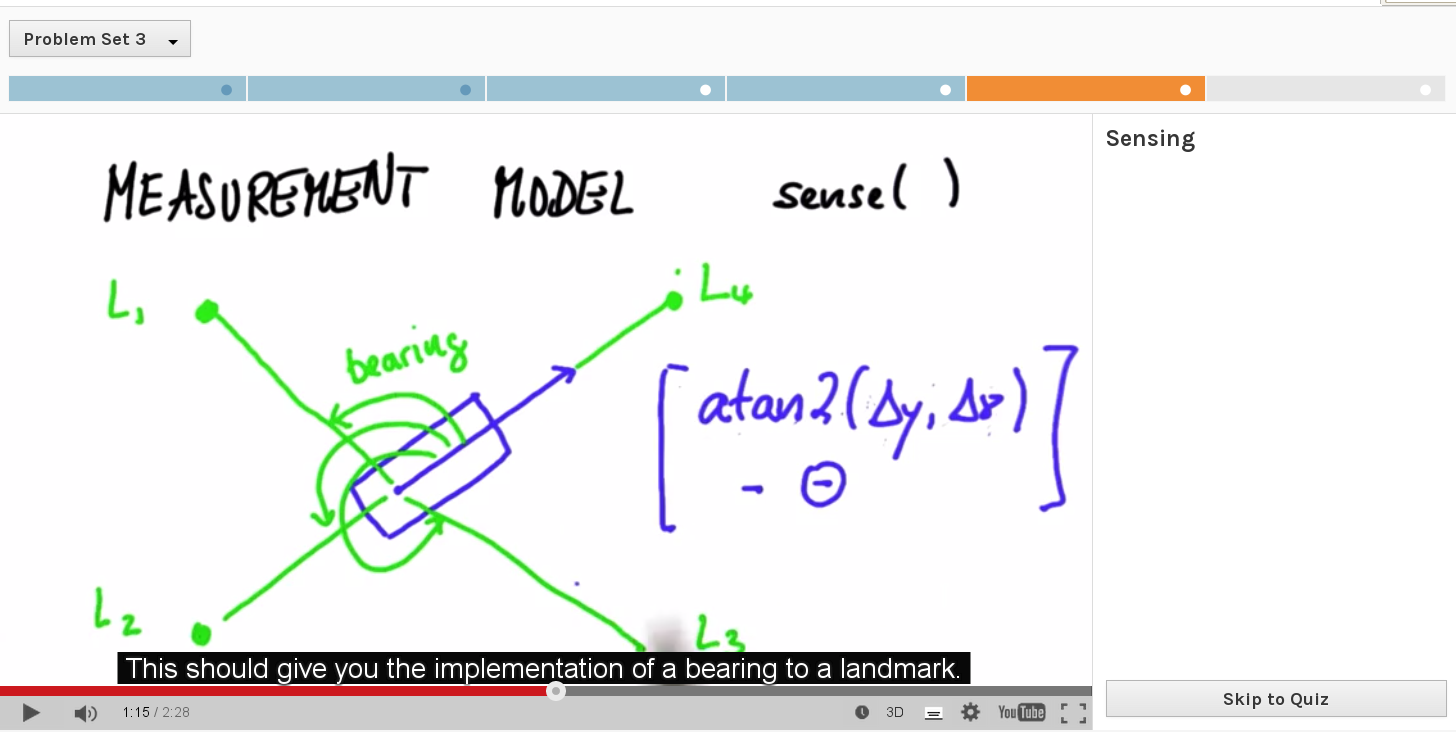 Problem Set 3
Sensing
MEASUREMENT MODEL sense( )
L1
L4
bearing
[ atan2(Δy, Δx)
- Θ ]
L2
L3
This should give you the implementation of a bearing to a landmark.
Skip to Quiz
1:15 / 2:28
3D
YouTube